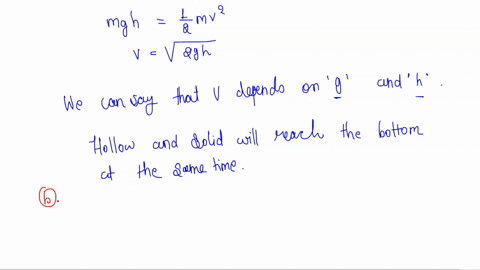 mgh = 1/2 mv²
v = √2gh
We can say that V depends on 'g' and 'h'.
Hollow and solid will reach the bottom
at the same time.
(b).